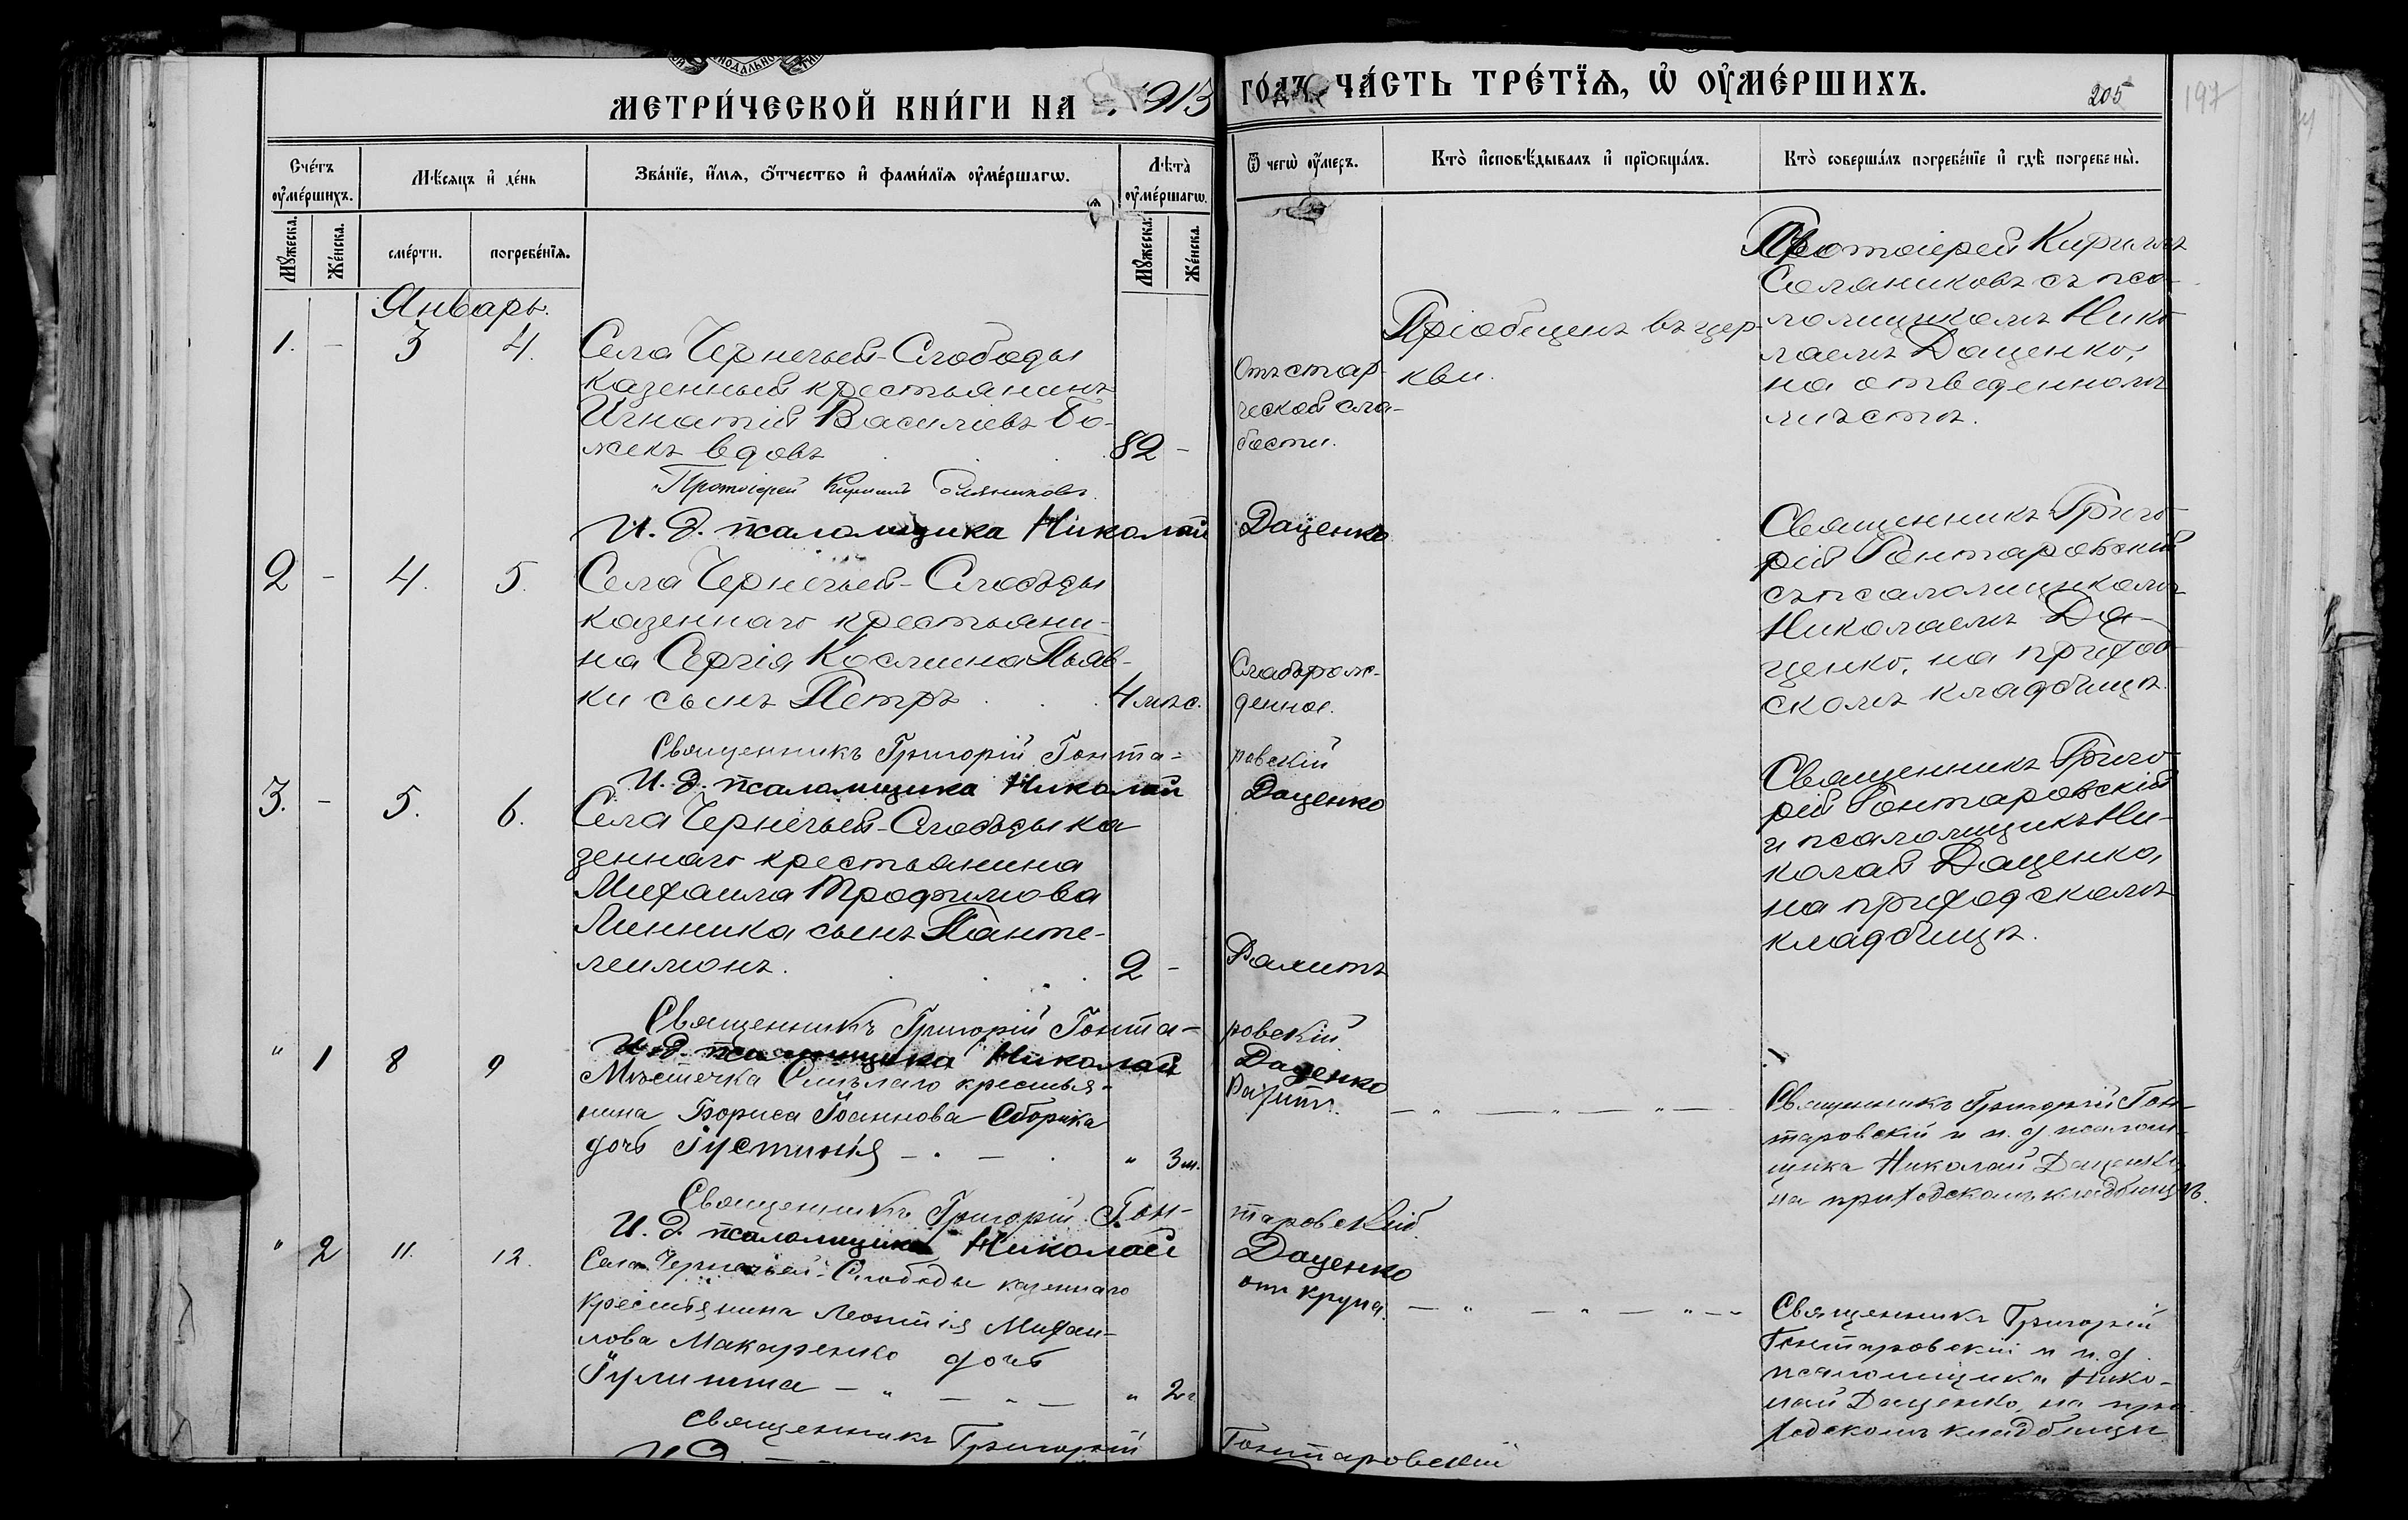 МЕТРИ́ЧЕСКОЙ КНИ́ГИ НА 1913 ГО́ДЪ, ЧА́СТЬ ТРЕ́ТЇѦ, Ѡ҆ ОУ҆МЕ́РШИХЪ.
205
197
Сче́тъ оу҆ме́ршихъ.
Мѣ́сяцъ и҆ де́нь
Зва́нїе, и҆́мя, о҆́тчество и҆ фами́лїя оу҆ме́ршагѡ.
Лѣ́та оу҆ме́ршагѡ.
Ѿ чегѡ̀ оу҆́меръ.
Кто̀ и҆сповѣ́дывалъ и҆ прїѡбща́лъ.
Кто̀ соверша́лъ погребе́нїе и҆ гдѣ̀ погребены̀.
Му́жеска.
Же́нска.
сме́рти.
погребе́нїя.
Му́жеска.
Же́нска.
Январь.
1. - 3 4.
Села Чернечьей-Слободы
казенный крестьянинъ
Игнатій Василіевъ Бо-
жекъ вдовъ
82 -
Отъ стар-
ческой сла-
бости.
Пріобщенъ въ цер-
кви.
Протоіерей Кириллъ
Соляниковъ съ пса-
ломщикомъ Нико-
лаемъ Даценко,
на отведенномъ
мѣстѣ.
Протоіерей Кириллъ Соляниковъ.
И. д. псаломщика Николай Даценко
2 - 4. 5.
Села Чернечьей-Слободы
казеннаго крестьяни-
на Сергія Космина Пьяв-
ки сынъ Петръ
4 мѣс.
Слаборож-
денное.
Священникъ Григо-
рій Гонтаровскій
съ псаломщикомъ
Николаемъ Да-
ценко, на приход-
скомъ кладбищѣ.
Священникъ Григорій Гонта-
ровскій
И. д. псаломщика Николай Даценко
3. - 5. 6.
Села Чернечьей-Слободы ка
зеннаго крестьянина
Михаила Трофимова
Линника сынъ Панте-
леимонъ.
2 -
Рахитъ
Священникъ Григо-
рій Гонтаровскій
и псаломщикъ Ни-
колай Даценко,
на приходскомъ
кладбищѣ.
Священникъ Григорій Гонта-
ровскій
И. д. псаломщика Николай Даценко
" 1 8 9
Мѣстечка Смѣлаго крестья-
нина Бориса Іоаннова Сборика
дочь Іустинія
" 3 м.
Рахит.
Священникъ Григорій Гон-
таровскій и и. д. псалом-
щика Николай Даценко,
на приходскомъ кладбищѣ.
Священникъ Григорій Гон-
таровскій.
И. д. псаломщика Николай Даценко
" 2 11. 12.
Села Чернечьей-Слободы казеннаго
крестьянина Леонтія Михаи-
лова Макаренко дочь
Іулитта
" 2 г.
отъ крупа.
Священникъ Григорій
Гонтаровскій и и. д.
псаломщика Нико-
лай Даценко, на при-
ходскомъ кладбищѣ
Священникъ Григорій Гонтаровскій
И. д.